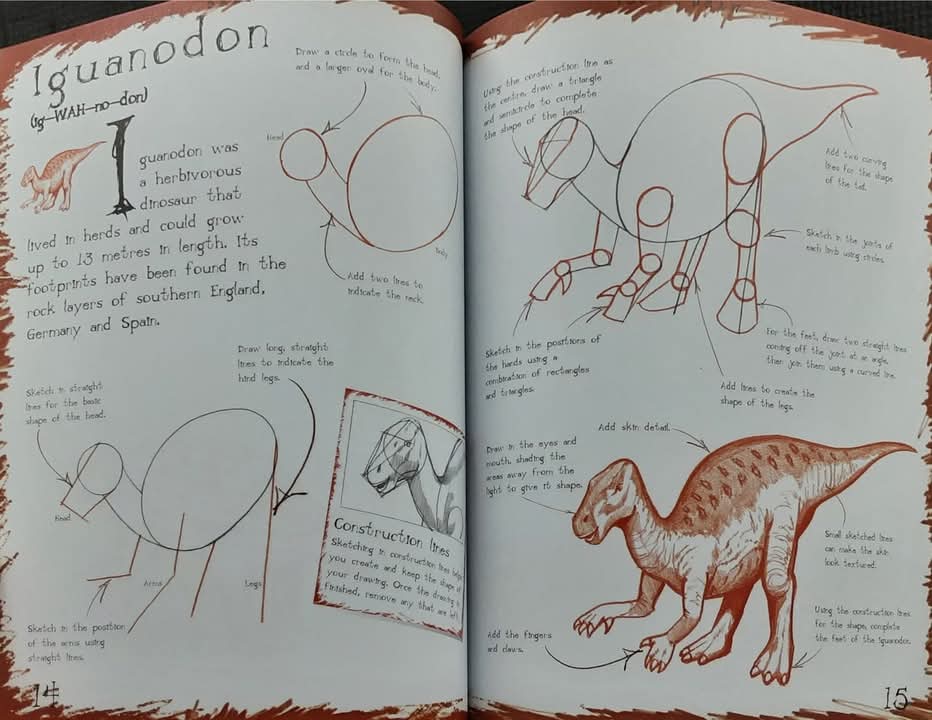 Iguanodon
(ig-WAH-no-don)
Iguanodon was
a herbivorous
dinosaur that
lived in herds and could grow
up to 13 metres in length. Its
footprints have been found in the
rock layers of southern England,
Germany and Spain.
Draw a circle to form the head,
and a larger oval for the body.
Head
Body
Add two lines to
indicate the neck.
Sketch in straight
lines for the basic
shape of the head.
Draw long, straight
lines to indicate the
hind legs.
Head
Arms
Legs
Sketch in the position
of the arms using
straight lines.
Construction lines
Sketching in construction lines helps
you create and keep the shape of
your drawing. Once the drawing is
finished, remove any that are left.
14
Using the construction line as
the centre, draw a triangle
and semicircle to complete
the shape of the head.
Add two curving
lines for the shape
of the tail.
Sketch in the joints of
each limb using circles.
Sketch in the positions of
the hands using a
combination of rectangles
and triangles.
For the feet, draw two straight lines
coming off the joint at an angle,
then join them using a curved line.
Add lines to create the
shape of the legs.
Draw in the eyes and
mouth, shading the
areas away from the
light to give it shape.
Add skin detail.
Small sketched lines
can make the skin
look textured.
Using the construction lines
for the shape, complete
the feet of the iguanodon.
Add the fingers
and claws.
15